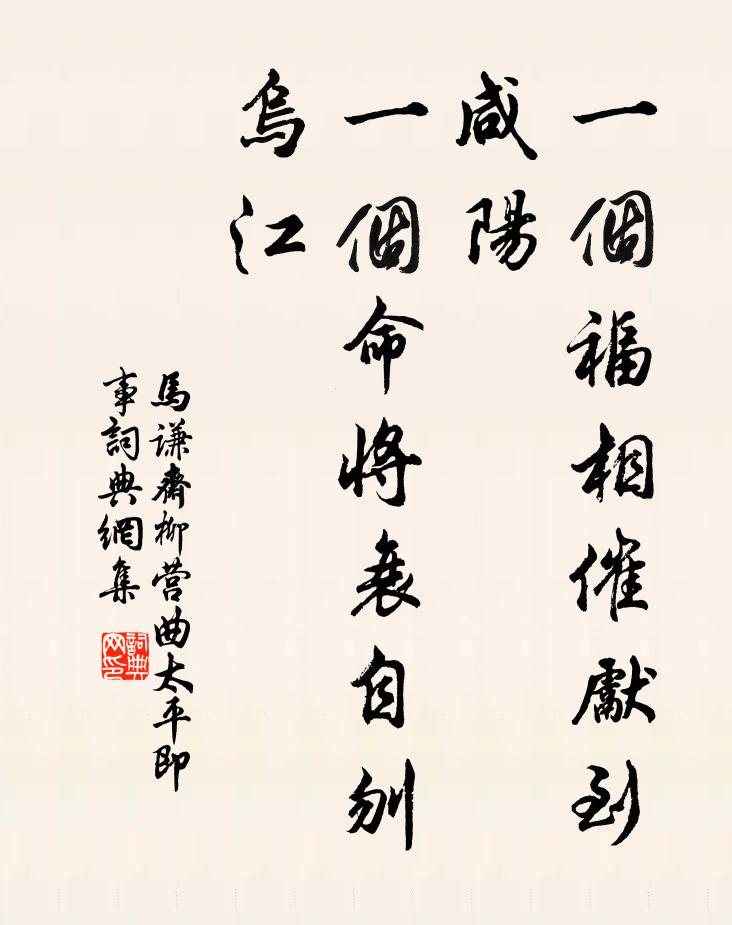 一個福相催獻到
咸陽
一個命將衰自刎
烏江
馬謙齋柳營曲太平即
事詞典網集
詞典網印